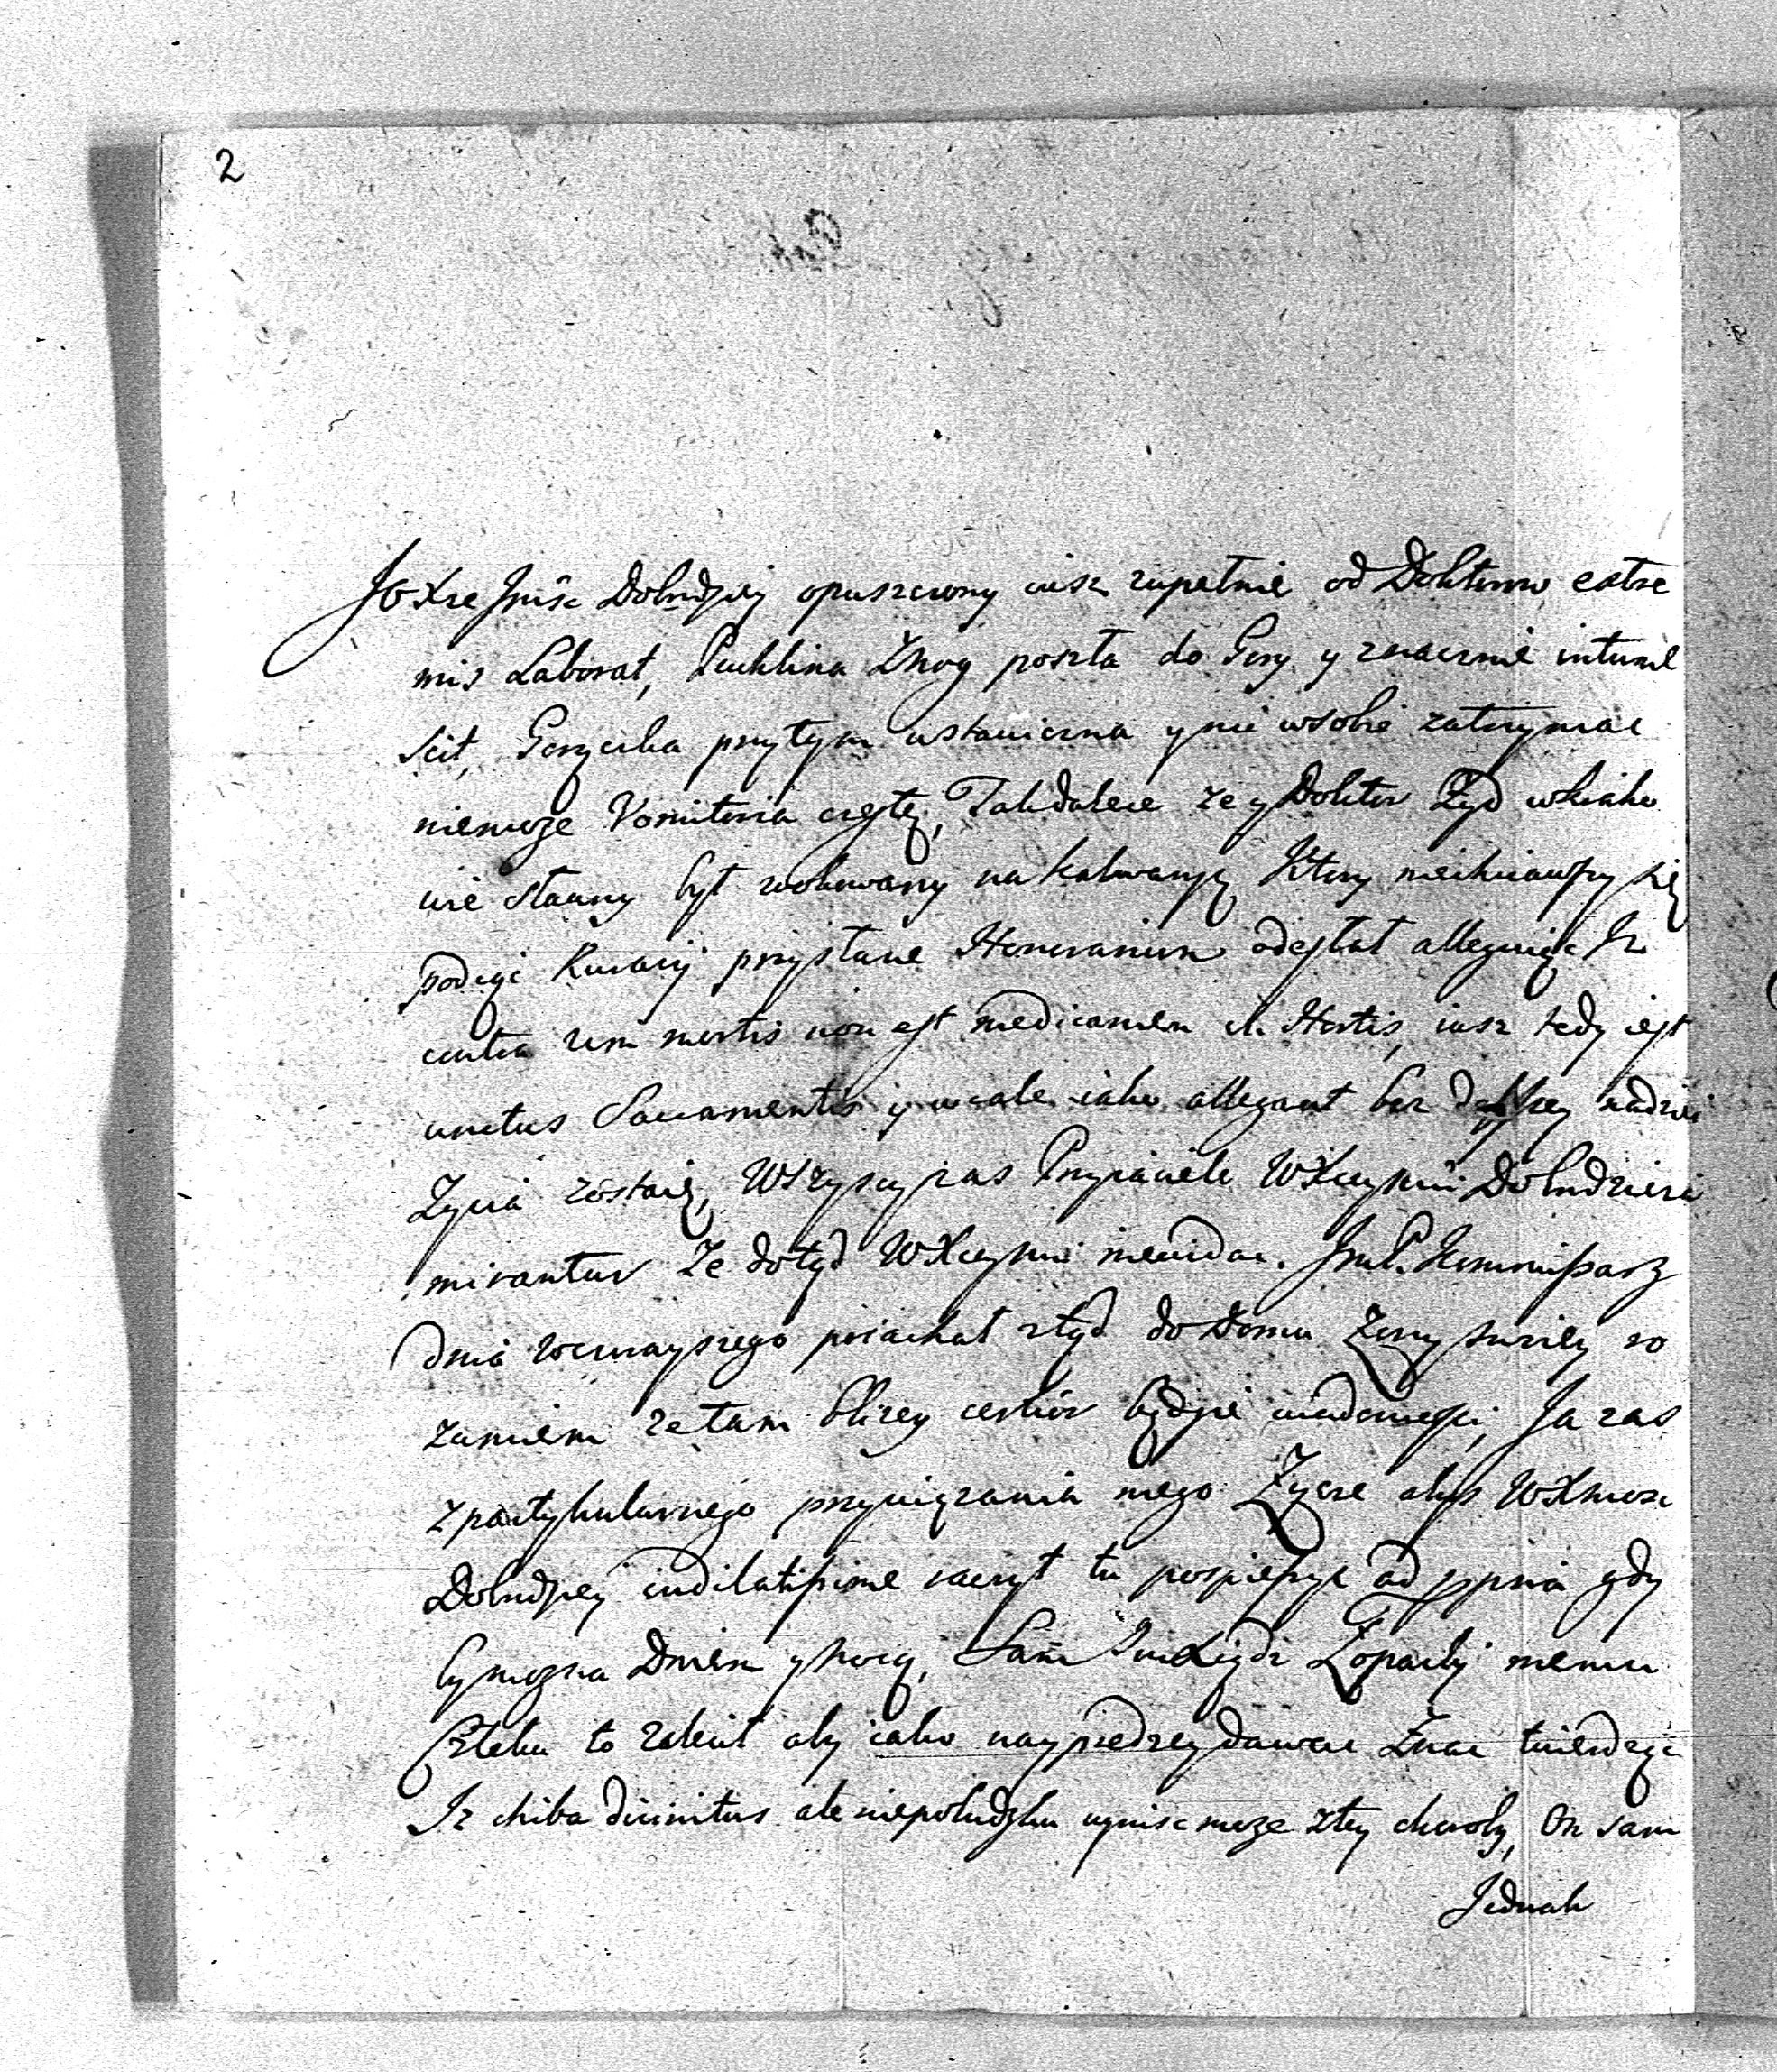 2
JO Xże Jmść Dobrdziey opuszczony iusz zupełnie od Doktorow extre
mis Laborat, Puchlina Znog poszła do Gory y znacznie intume
scit, Gorączka przytym ustawiczna y nic wsobie zatrzymac
niemoze Vomitoria częste, Takdalece ze y Doktor Zyd wKrako
wie sławny był wokowany na Kalwaryę Ktory niechciawszy się
podcyć Kuracij przysłane Honorarium odesłał alleguiąc Iz
contra vim mortis non est medicamen in Hortis, iusz tedy iest
unctus Sacramentis y wcale iako allegant bez dalszey nadziei
Zycia zostaie, Wszyscy zas Przyiaciele WXcey Mci Dobrdzieia
mirantur Ze dotyd WXcey Mci niewidac. JmP. Kommissarz
dnia wczorayszego poiachał ztyd do Domu Zony swoiey ro
zumiem ze tam blizey certior będzie wiadomosci, Ja zas
z partykularnego przywiązania mego Zycze abys WXMosc
Dobrdziey indilatissime raczył tu pospieszyc ad gdy
by mozna Dniem y Nocą, Sam Xiądz Zopacky memu
Człeku to zalecił aby iako nayprędzey dawac Znac twierdząc
Iz chiba divinitus ale niepoludzku wynisc moze ztey choroby, On sam
Jednak